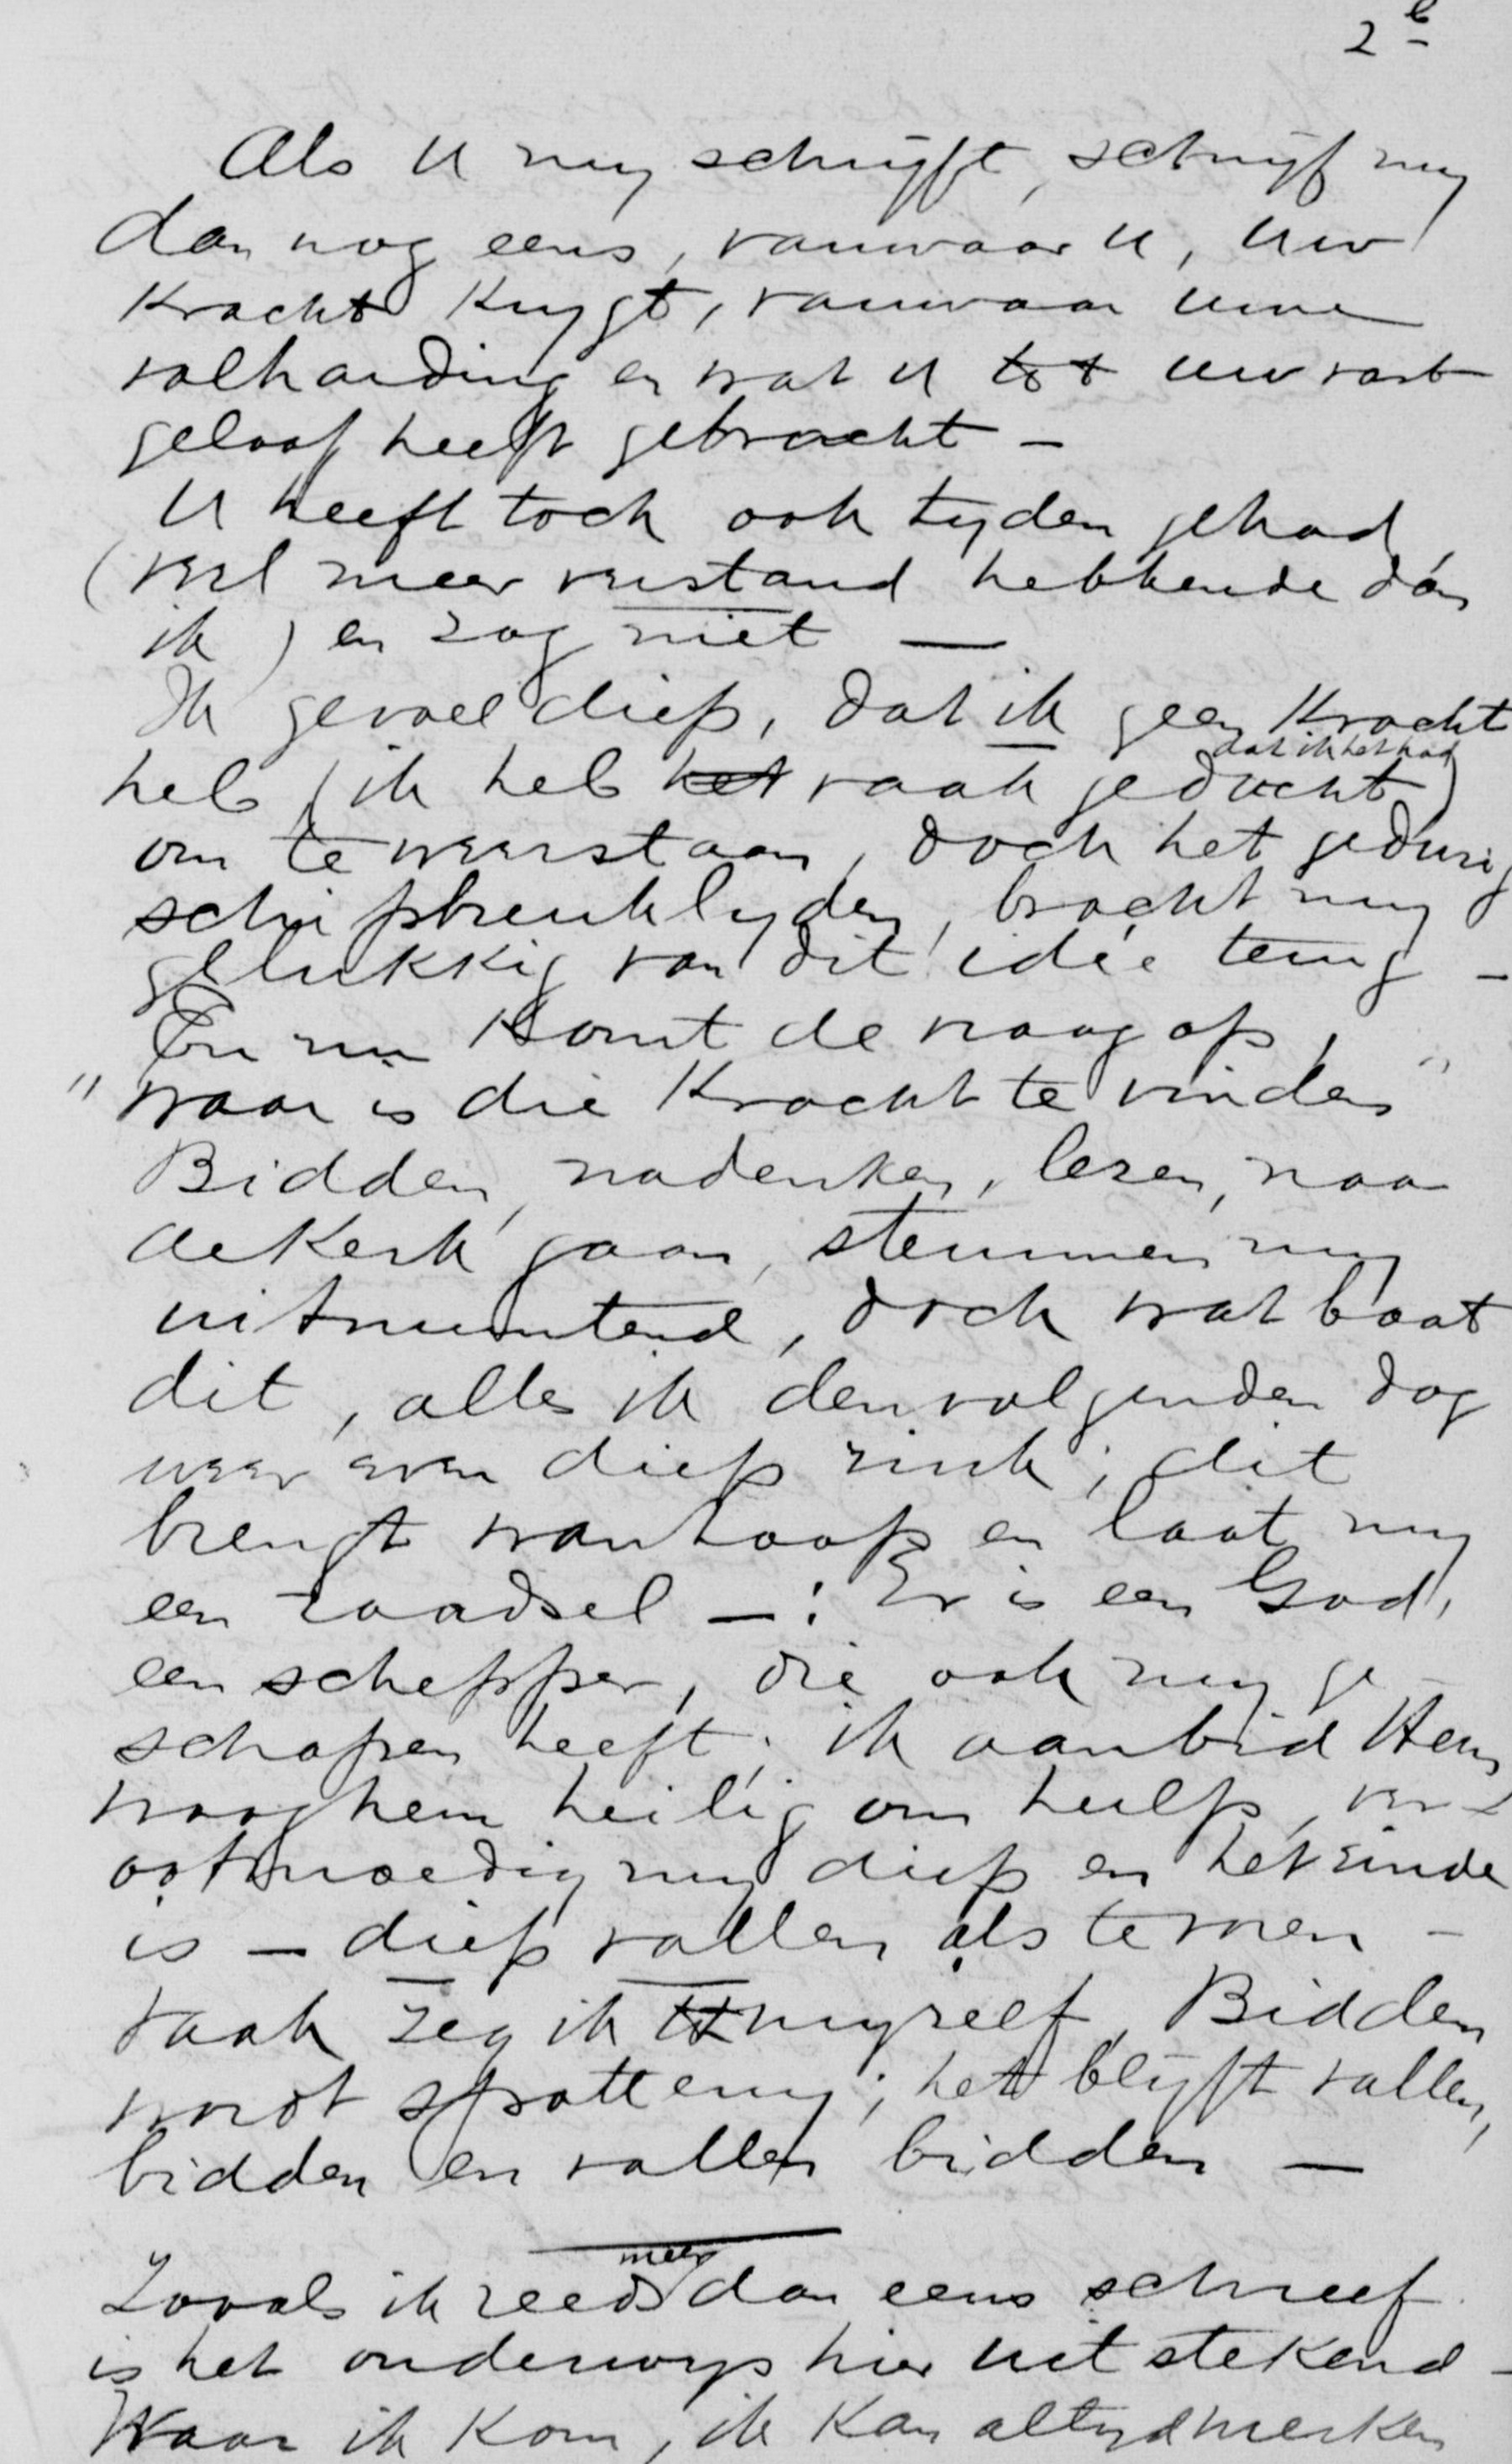 2e
Als U my schryft, schryf my
dan nog eens, vanwaar U, Uw
Kracht Krygt, vanwaar Uwe
volharding en wat U tot Uw vast
geloof heeft gebracht —
U heeft toch ook tyden gehad,
(veel meer verstand hebbende dan
ik) en zag niet —
Ik gevoel diep, dat ik geen Kracht
heb (ik heb het vaak gedacht dat ik het had)
om te weerstaan, doch het gedurig
schipbreuk lyden, bracht my
gelukkig van dit idée terug —
En nu Komt de vraag op,
"waar is die Kracht te vinden"
Bidden, nadenken, lezen, naar
de Kerk gaan, stemmen my
uitmuntend, doch wat baat
dit, alles ik den volgenden dag
weer even diep zink; dit
brengt wanhoop en laat my
een raadsel —: Er is een God,
een schepper, die ook my ge-
schapen heeft; ik aanbid Hem,
vraag hem heilig om hulp, ver-
ootmoedig my diep en het einde
is — diep vallen als te voren —
Vaak zeg ik myself, Bidden
wordt spotterny; het blyft vallen,
bidden en vallen bidden —
Zooals ik reeds meer dan eens schreef
is het onderwys hier uitstekend —
Waar ik Kom, ik Kan altyd merken